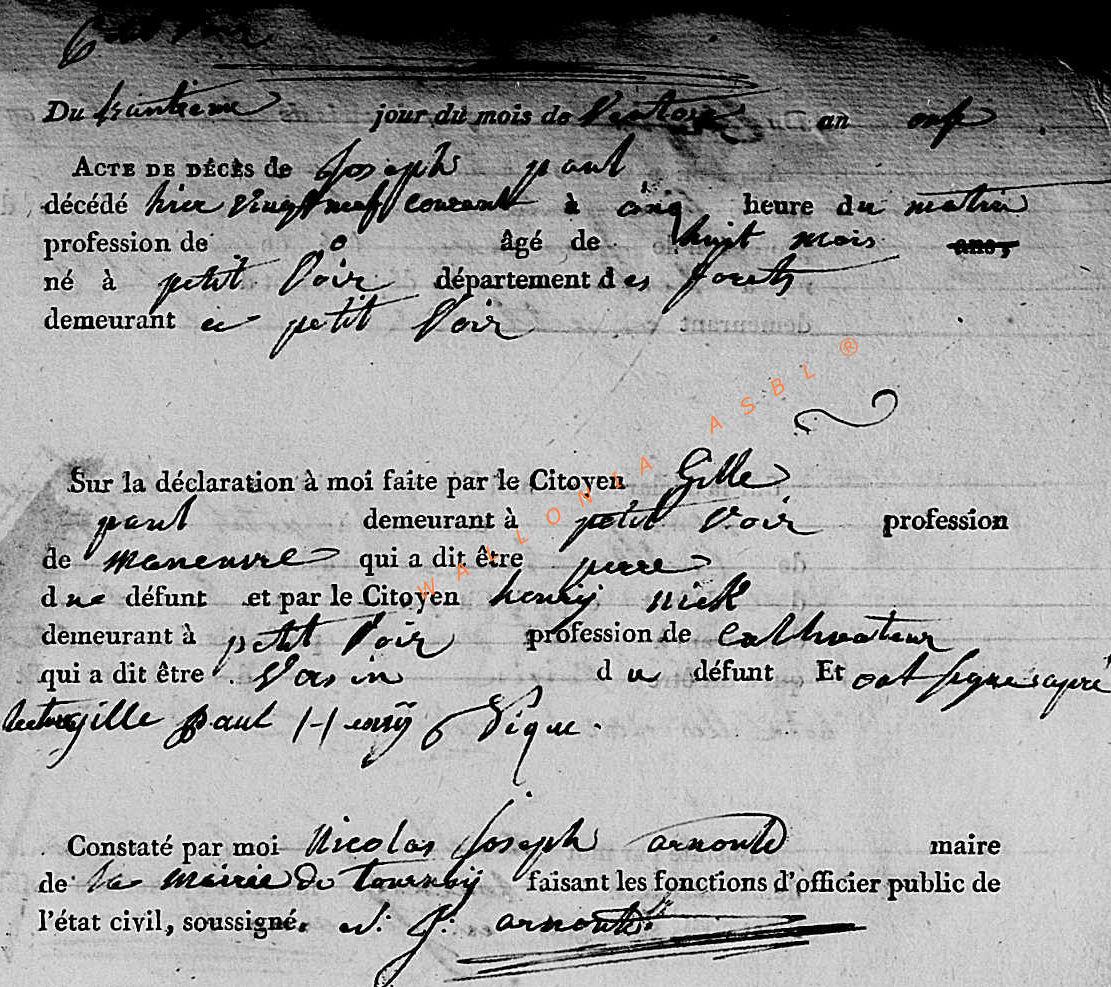 Du trantieme jour du mois de Ventose an onse
ACTE DE DÉCÈS de Joseph paul
décédé hier vingt neuf courant à cinq heure du matin
profession de o âgé de huit mois ans,
né à petit Voir département des forets
demeurant a petit Voir
WALLONIA ASBL ®
Sur la déclaration à moi faite par le Citoyen Gille
paul demeurant à petit Voir profession
de maneuvre qui a dit être perre
due défunt et par le Citoyen henrij nick
demeurant à petit Voir profession de culthivateur
qui a dit être Vosin du défunt Et ont signe apre
lecture gille paul Henrÿ
Constaté par moi Nicolas Joseph arnould maire
de la mairie de tournaij faisant les fonctions d'officier public de
l'état civil, soussigné. N: J: arnould